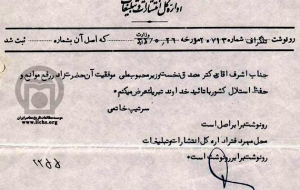 اداره کل انتشارات و تبلیغات
رونوشت تلگراف شماره ۲۰۷۱۳ مورخه که اصل آن بشماره ثبت شد
وزارت
جناب اشرف آقای دکتر مصدق نخست وزیر محبوب ملی موفقیت آن حضرت را در رفع موانع و
حفظ استقلال کشور با تائید خداوند تبریک عرض میکنم
سرتیپ خاتمی
رونوشت برابر اصل است
محل مهر دفتر اداره کل انتشارات و تبلیغات
رونوشت برابر رونوشت است
www.iichs.org